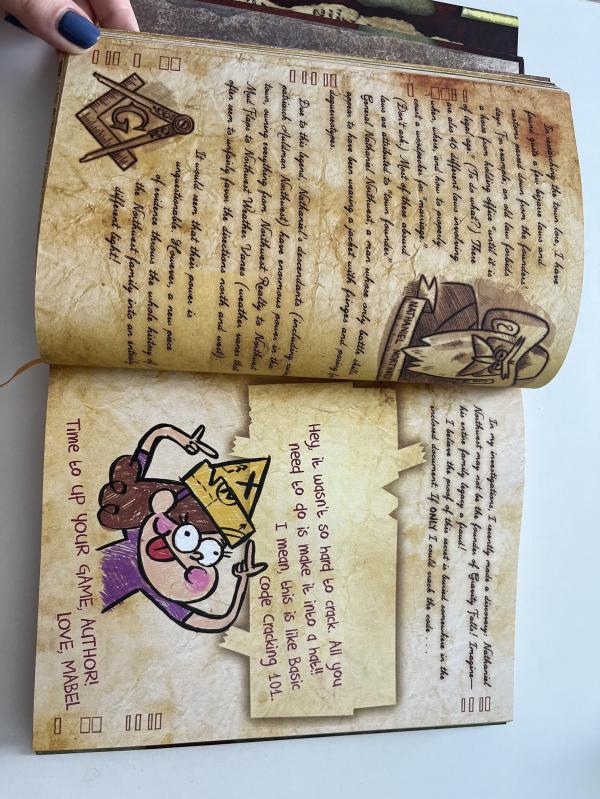 In researching the town lore, I have
found quite a few bizarre laws and
customs passed down from the founders'
day. For example, an old law forbids
a horse from holding office "until it is
of legal age." (To do what?) There
are also 40 different laws involving
when, where, and how to properly
court a woodpecker for "marriage."
(Don't ask.) Most of these absurd
laws are attributed to town founder
General Nathaniel Northwest, a man whose only battle skills
appear to have been wearing a jacket with fringes and posing for
daguerreotypes.
NATHANIEL NORTHWEST
Due to this legend, Nathaniel's descendants (including current
patriarch Auldman Northwest) have enormous power in the
town, owning everything from Northwest Realty to Northwest
Mud Flaps to Northwest Weather Vanes (weather vanes that
often seem to unfairly favor the directions north and west).
It would seem that their power is
unquestionable. However, a new piece
of evidence throws the whole history of
the Northwest family into an entirely
different light!
G
In my investigations, I recently made a discovery: Nathaniel
Northwest may not be the founder of Gravity Falls! Imagine—
his entire family legacy a fraud!
I believe the proof of this secret is buried somewhere in the
enclosed document. If ONLY I could crack the code . . .
Hey, it wasn't so hard to crack. All you
need to do is make it into a hat!!
I mean, this is like Basic
Code Cracking 101.
Time to up YOUR GAME, AUTHOR!
LOVE, MABEL